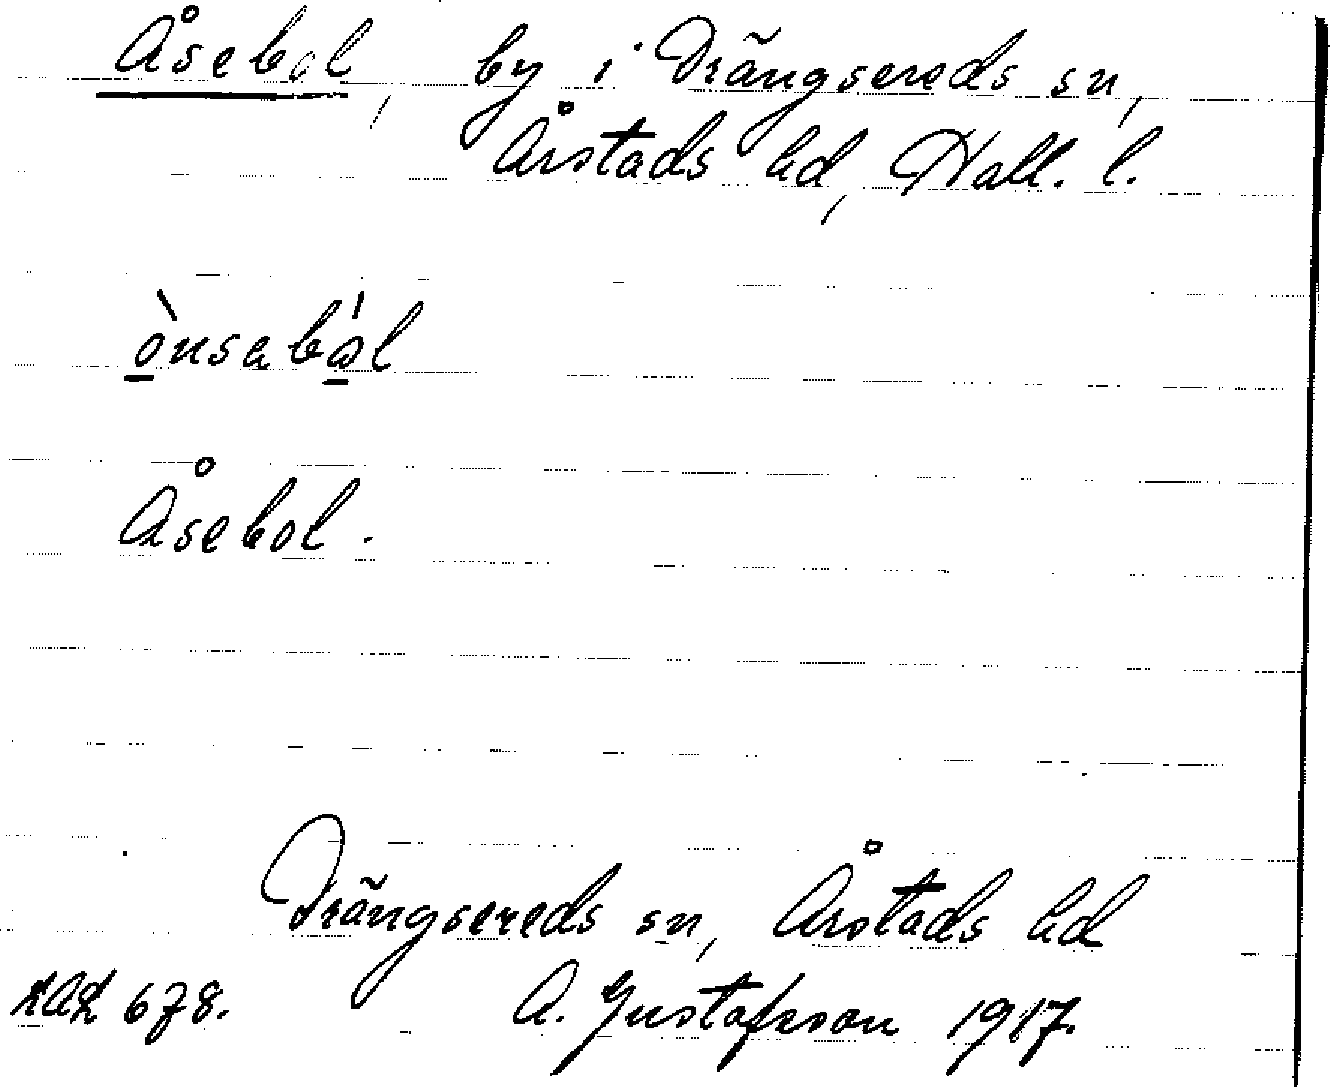 Åsebol, by i Drängsereds sn,
Årstads hd, Hall. l.
ònsabål
Åsebol.
Drängsereds sn, Årstads hd
678. A. Gustafsson 1917.